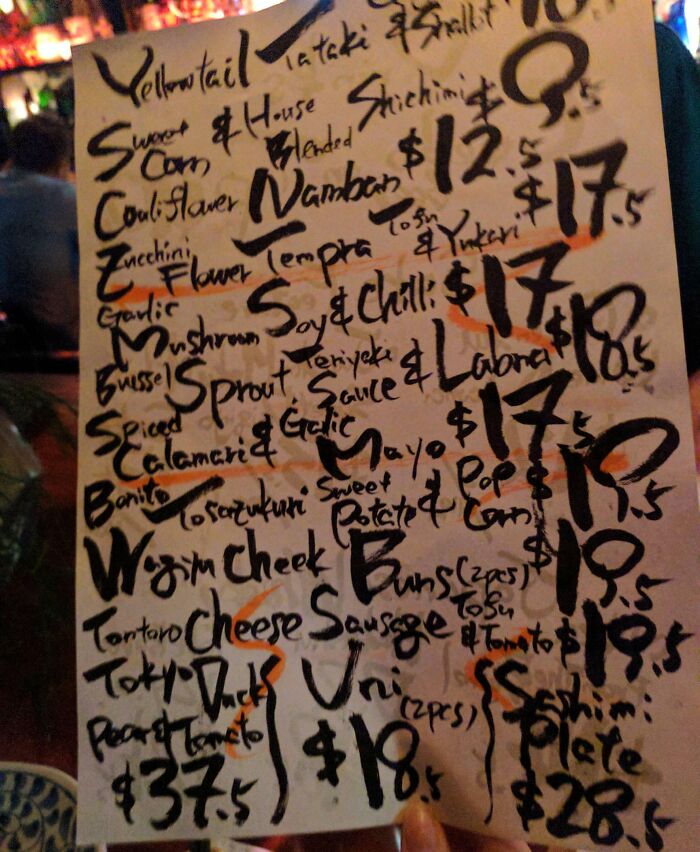 Yellowtail Tataki & Shallot
Sweet Corn & House Blended Shichimi $9.5
Couliflower Namban $12.5
Zucchini Flower Tempra Tofu & Yukari $17.5
Garlic Mushroom Soy & Chilli $17
Brussel Sprout Teriyaki Sauce & Labna $18.5
Spiced Calamari & Galic Mayo $17.5
Bonito Tosazukuri Sweet Potate & Pop Corn $19.5
Wagyu Cheek Buns (2pcs) $19.5
Tontoro Cheese Sausage Tofu & Tomato $19.5
Tokyo Duck
Pear & Tomato
$37.5
Uni
(2pcs)
$18.5
Sashimi
Plate
$28.5